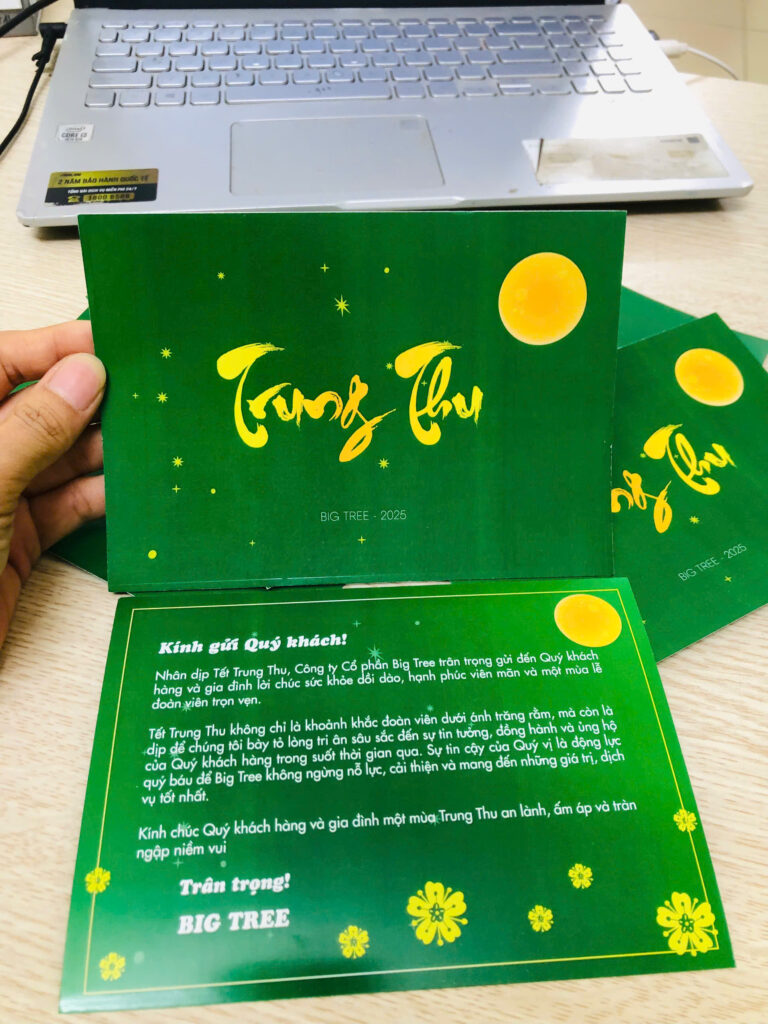 CORE i3
2 NĂM BẢO HÀNH QUỐC TẾ
TỔNG ĐÀI DỊCH VỤ MIỄN PHÍ 24/7
1800 6588
Trung Thu
BIG TREE - 2025
Trung Thu
BIG TREE - 2025
Kính gửi Quý khách!
Nhân dịp Tết Trung Thu, Công ty Cổ phần Big Tree trân trọng gửi đến Quý khách
hàng và gia đình lời chúc sức khỏe dồi dào, hạnh phúc viên mãn và một mùa lễ
đoàn viên trọn vẹn.
Tết Trung Thu không chỉ là khoảnh khắc đoàn viên dưới ánh trăng rằm, mà còn là
dịp để chúng tôi bày tỏ lòng tri ân sâu sắc đến sự tin tưởng, đồng hành và ủng hộ
của Quý khách hàng trong suốt thời gian qua. Sự tin cậy của Quý vị là động lực
quý báu để Big Tree không ngừng nỗ lực, cải thiện và mang đến những giá trị, dịch
vụ tốt nhất.
Kính chúc Quý khách hàng và gia đình một mùa Trung Thu an lành, ấm áp và tràn
ngập niềm vui
Trân trọng!
BIG TREE